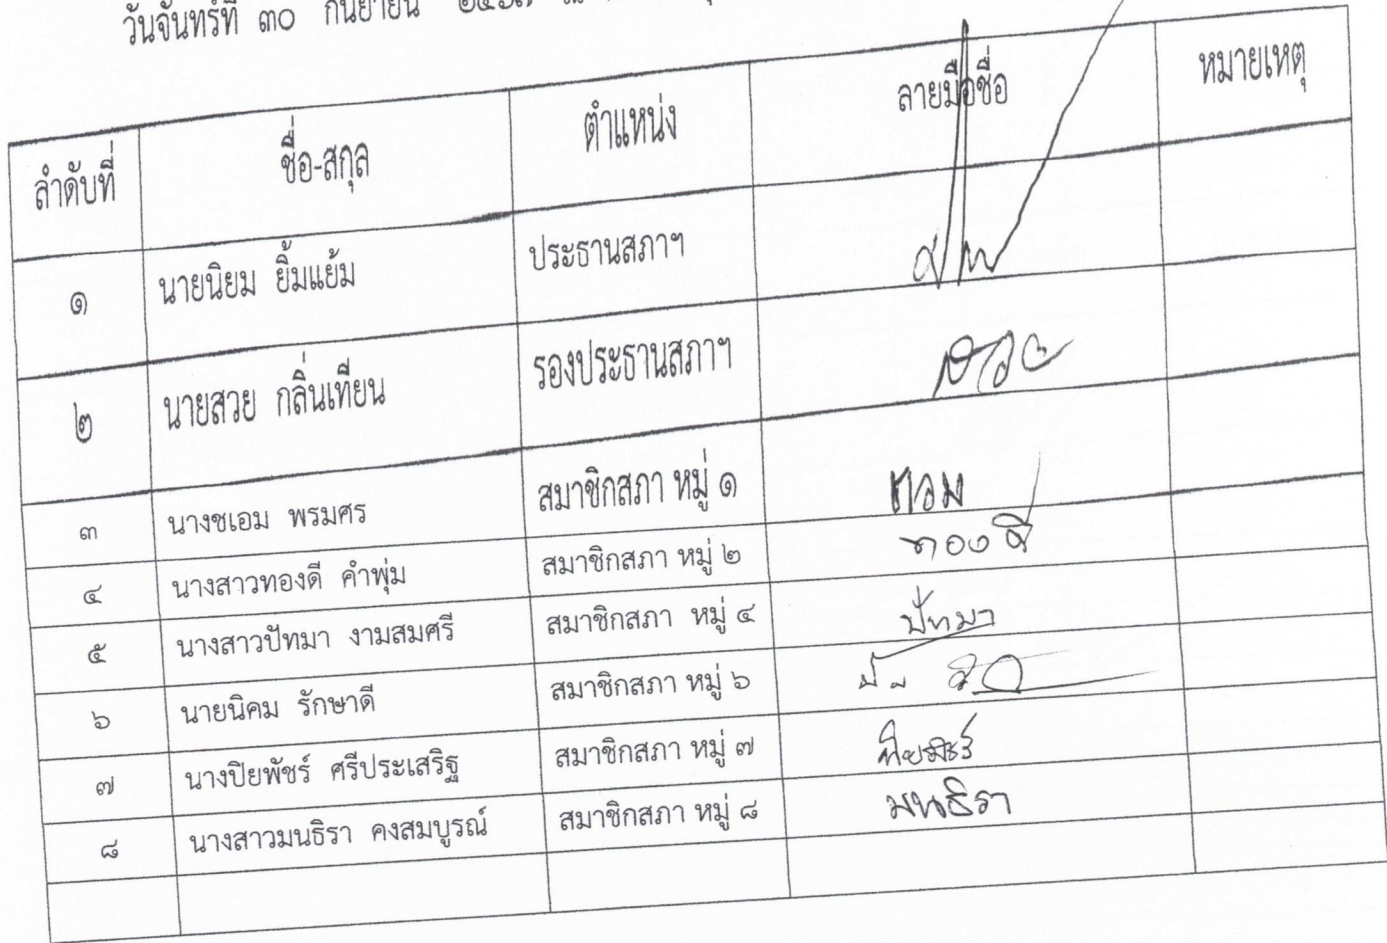 วันจันทร์ที่ ๓๐ กันยายน ๒๕๖๗
ลำดับที่ ชื่อ-สกุล ตำแหน่ง ลายมือชื่อ หมายเหตุ
๑ นายนิยม ยิ้มแย้ม ประธานสภาฯ
๒ นายสวย กลิ่นเทียน รองประธานสภาฯ สวย
๓ นางชเอม พรมศร สมาชิกสภา หมู่ ๑ ชเอม
๔ นางสาวทองดี คำพุ่ม สมาชิกสภา หมู่ ๒ ทองดี
๕ นางสาวปัทมา งามสมศรี สมาชิกสภา หมู่ ๔ ปัทมา
๖ นายนิคม รักษาดี สมาชิกสภา หมู่ ๖
๗ นางปิยพัชร์ ศรีประเสริฐ สมาชิกสภา หมู่ ๗ ปิยพัชร์
๘ นางสาวมนธิรา คงสมบูรณ์ สมาชิกสภา หมู่ ๘ มนธิรา